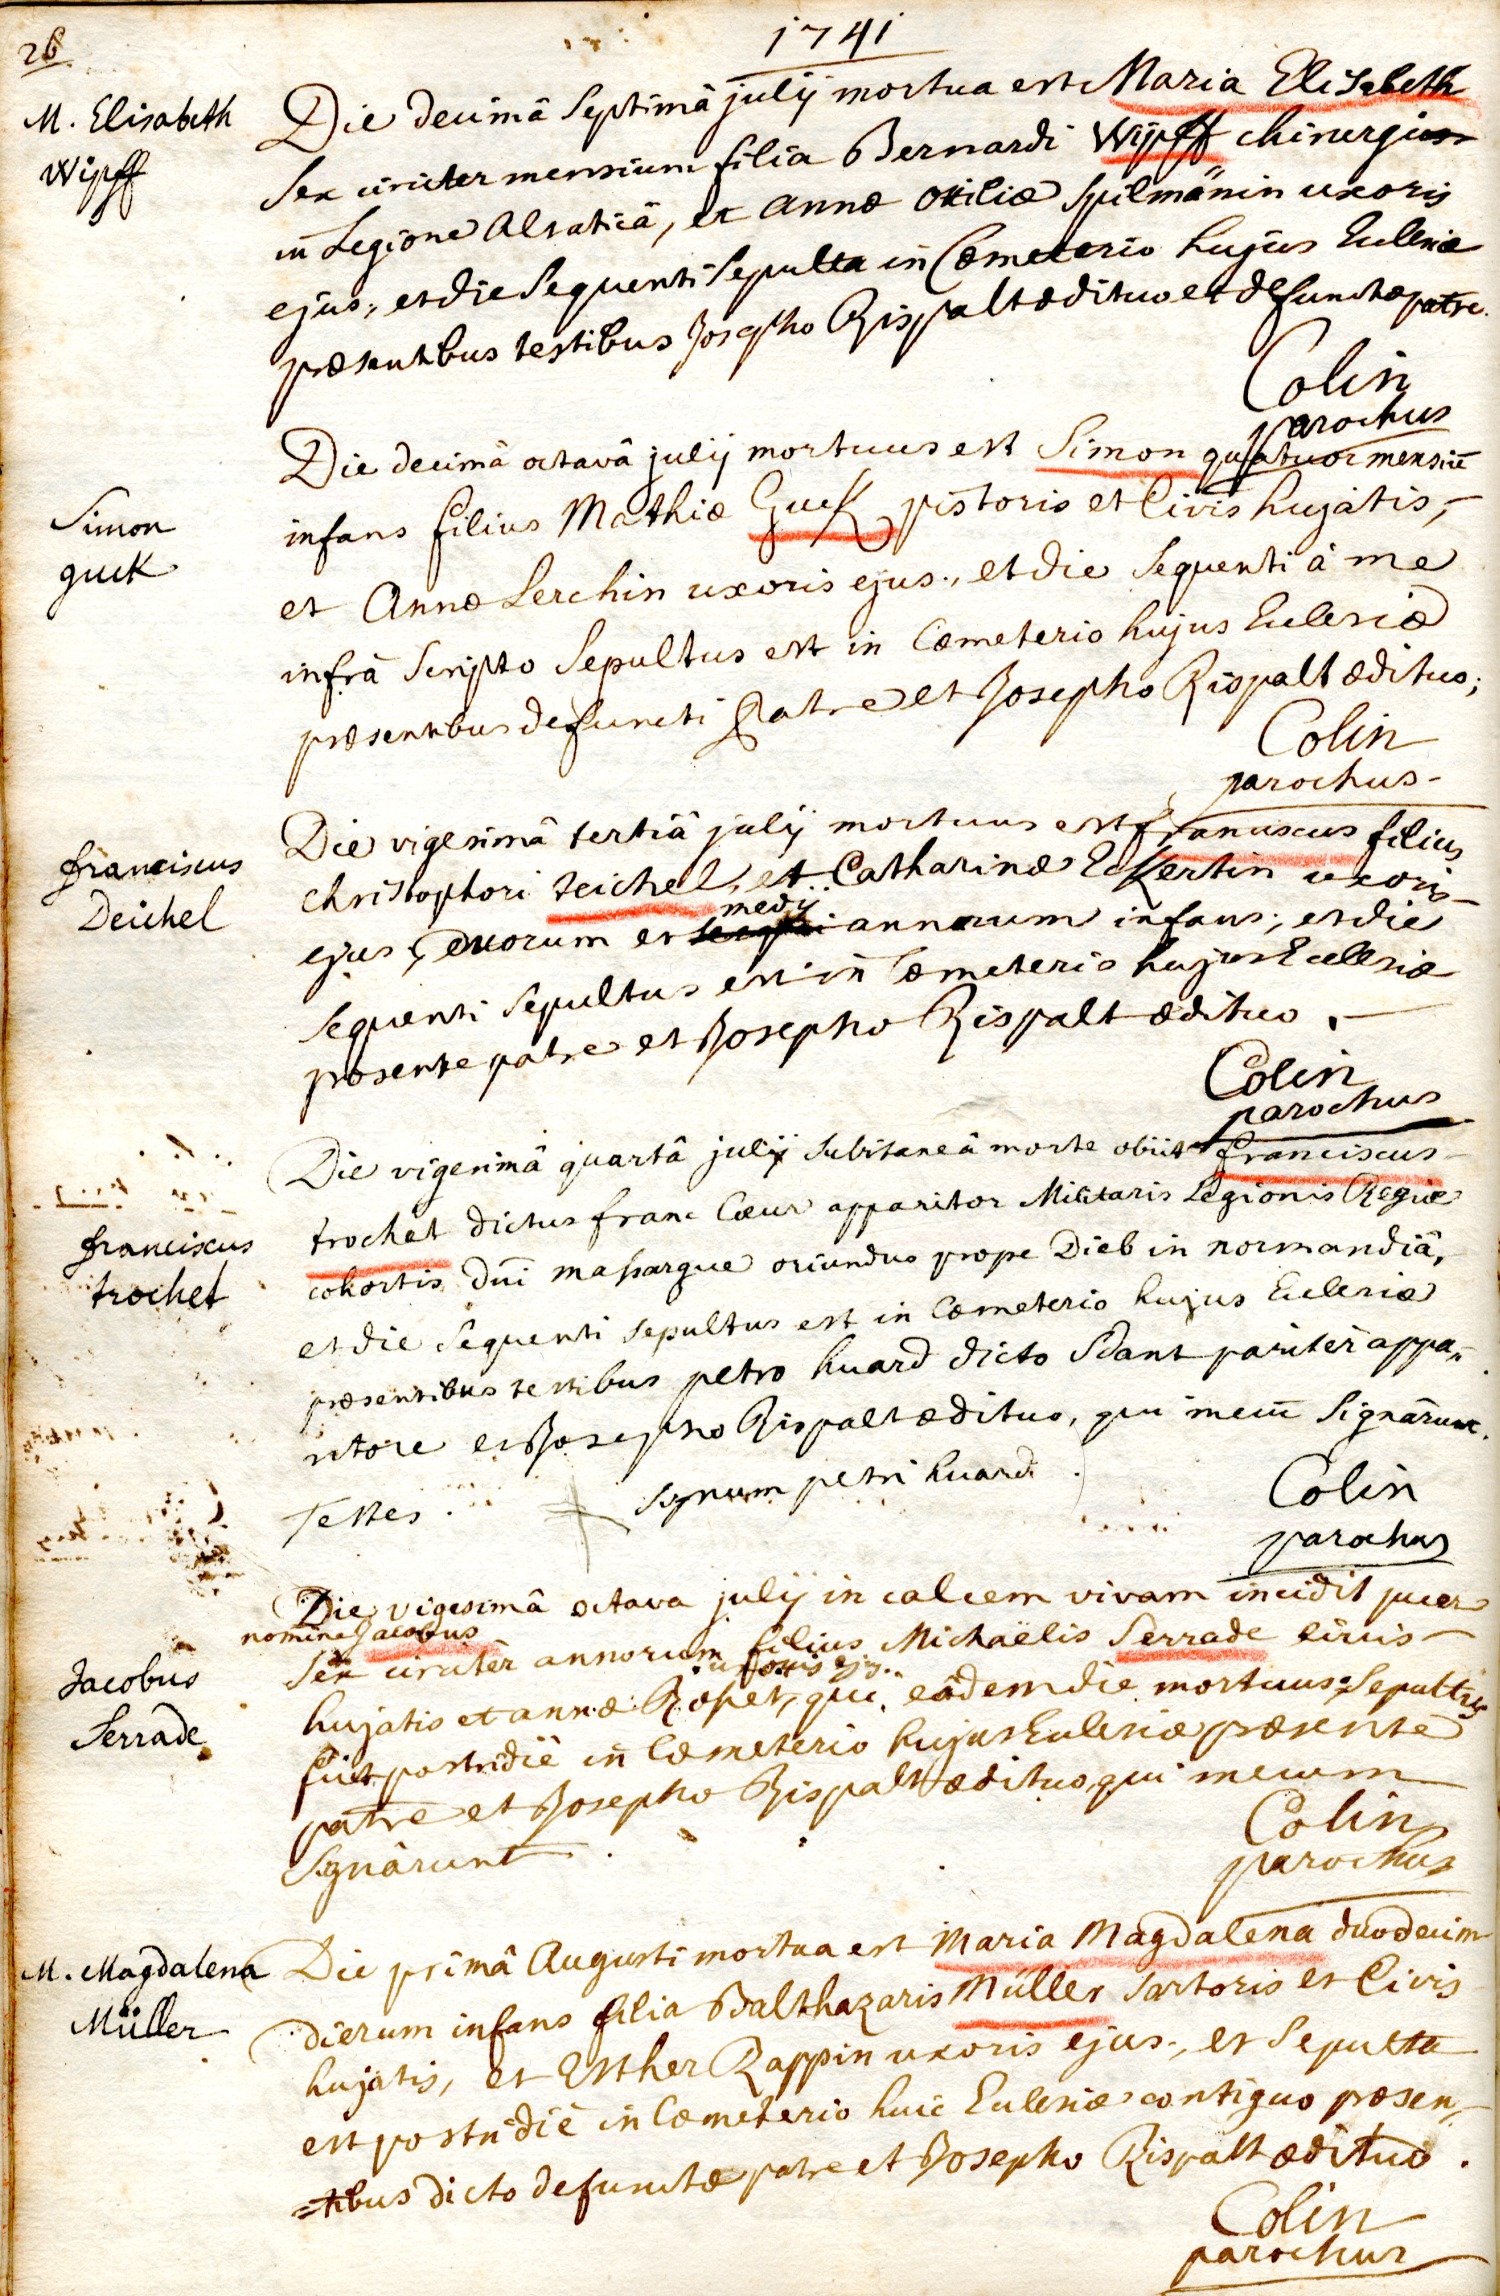 26
1741
M. Elisabeth
Wipff
Die decimâ septimâ julij mortua est Maria Elisabeth
sex circiter mensium filia Bernardi Wipff chirurgi
in Legione Alsaticâ, et annæ otiliæ Spilmänin uxoris
ejus, et die sequenti sepulta in Cœmeterio hujus Ecclesiæ
præsentibus testibus Josepho Rispalt ædituo et defunctæ patre.
Colin
parochus
Simon
guck
Die decimâ octavâ julij mortuus est Simon quatuor mensiũ
infans filius Mathiæ Guck pistoris et Civis hujatis,
et Annæ Lerchin uxoris ejus, et die sequenti à me
infrà scripto sepultus est in Cœmeterio hujus Ecclesiæ
præsentibus defuncti patre et Josepho Rispalt ædituo;
Colin
parochus
franciscus
Deichel
Die vigesimâ tertiâ julij mortuus est franciscus filius
christophori teichel, et Catharinæ Eckertin uxoris
ejus, duorum et medij annorum infans; et die
sequenti sepultus est in Cœmeterio hujus Ecclesiæ
præsente patre et Josepho Rispalt ædituo.
Colin
parochus
franciscus
trochet
Die vigesimâ quartâ julij subitaneâ morte obiit franciscus
trochet dictus franc Cœur apparitor Militaris Legionis Regiæ
cohortis dñi massargue oriundus prope Dieb in normandiâ,
et die sequenti sepultus est in Cœmeterio hujus Ecclesiæ
præsentibus testibus petro huard dicto Sdant pariter appa„
ritore et Josepho Rispalt ædituo, qui mecũ signârunt.
Testes. signum petri huard.
Colin
parochus
Jacobus
Serrade
Die vigesimâ octava julij in calcem vivam incidit puer
nomine Jacobus
sex circiter annorum filius Michaëlis Serrade civis
uxoris ejus
hujatis et annæ Ropet, qui eâdem die mortuus, sepultus
fuit postridiè in Cœmeterio hujus Ecclesiæ præsente
patre et Josepho Rispalt ædituo, qui mecum
signârunt.
Colin
parochus
M. Magdalena
Müller
Die primâ Augusti mortua est Maria Magdalena duodecim
dierum infans filia Balthazaris Müller sartoris et Civis
hujatis, et Esther Rappin uxoris ejus, et sepulta
est postridiè in Cœmeterio huic Ecclesiæ contiguo præsen„
=tibus dicto defunctæ patre et Josepho Rispalt ædituo.
Colin
parochus